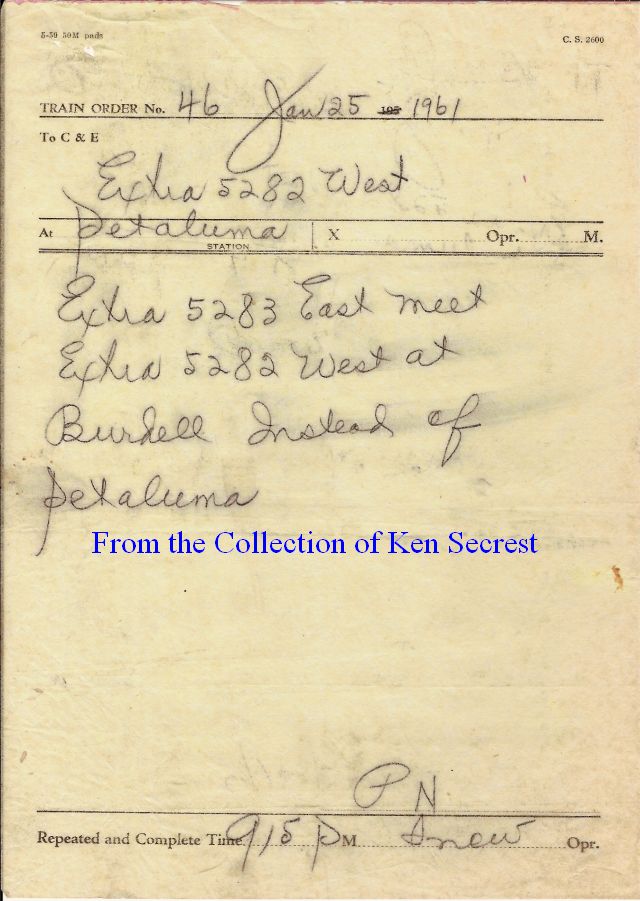 5-59 50M pads
C. S. 2600
TRAIN ORDER No. 46 Jan 25 195 1961
To C & E
Extra 5282 West
At Petaluma X Opr. M.
STATION
Extra 5283 East meet
Extra 5282 West at
Burdell Instead of
Petaluma
From the Collection of Ken Secrest
P N
Repeated and Complete Time 915 P M Opr.